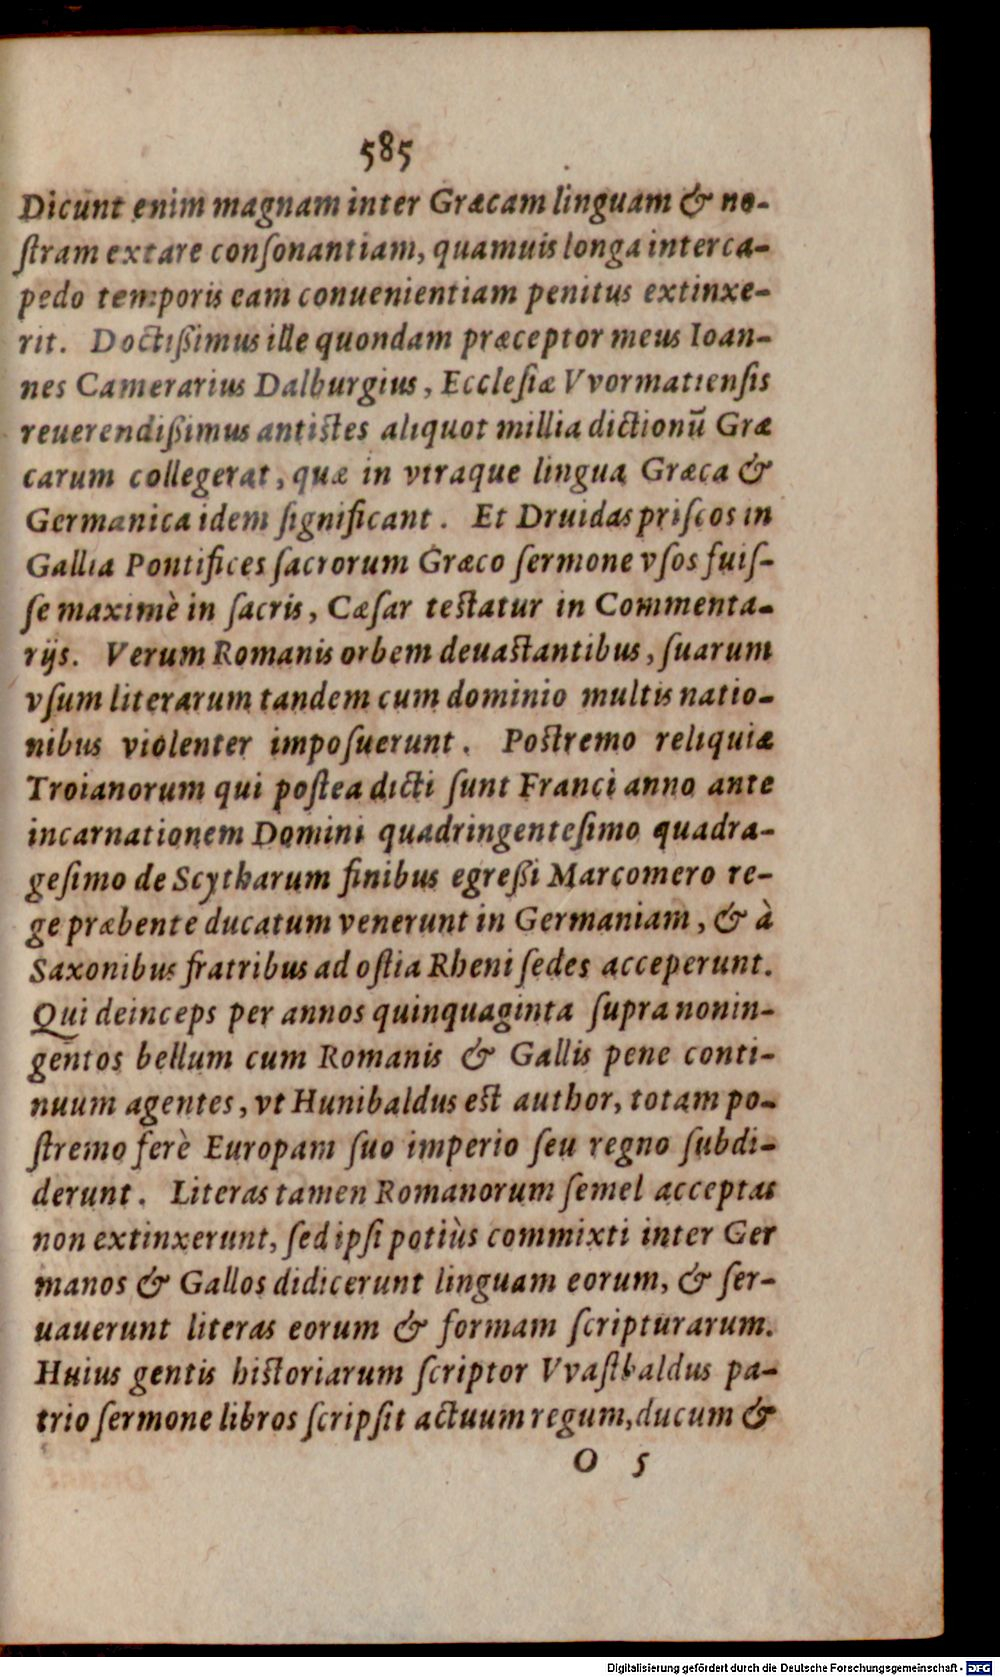 585
Dicunt enim magnam inter Græcam linguam & no-
ſtram extare conſonantiam, quamuis longa interca-
pedo temporis eam conuenientiam penitus extinxe-
rit. Doctißimus ille quondam præceptor meus Ioan-
nes Camerarius Dalburgius, Eccleſiæ Vvormatienſis
reuerendißimus antistes aliquot millia dictionū Græ
carum collegerat, quæ in vtraque lingua Græca &
Germanica idem ſignificant. Et Druidas priſcos in
Gallia Pontifices ſacrorum Græco ſermone vſos fuiſ-
ſe maximè in ſacris, Cæſar testatur in Commenta-
rijs. Verum Romanis orbem deuastantibus, ſuarum
vſum literarum tandem cum dominio multis natio-
nibus violenter impoſuerunt. Postremo reliquiæ
Troianorum qui poſtea dicti ſunt Franci anno ante
incarnationem Domini quadringenteſimo quadra-
geſimo de Scytharum finibus egreßi Marcomero re-
ge præbente ducatum venerunt in Germaniam, & à
Saxonibus fratribus ad oſtia Rheni ſedes acceperunt.
Qui deinceps per annos quinquaginta ſupra nonin-
gentos bellum cum Romanis & Gallis pene conti-
nuum agentes, vt Hunibaldus est author, totam po-
ſtremo ferè Europam ſuo imperio ſeu regno ſubdi-
derunt. Literas tamen Romanorum ſemel acceptas
non extinxerunt, ſed ipſi potiùs commixti inter Ger
manos & Gallos didicerunt linguam eorum, & ſer-
uauerunt literas eorum & formam ſcripturarum.
Huius gentis historiarum ſcriptor Vvaſtbaldus pa-
trio ſermone libros ſcripſit actuum regum, ducum &
O 5
Digitalisierung gefördert durch die Deutsche Forschungsgemeinschaft - DFG